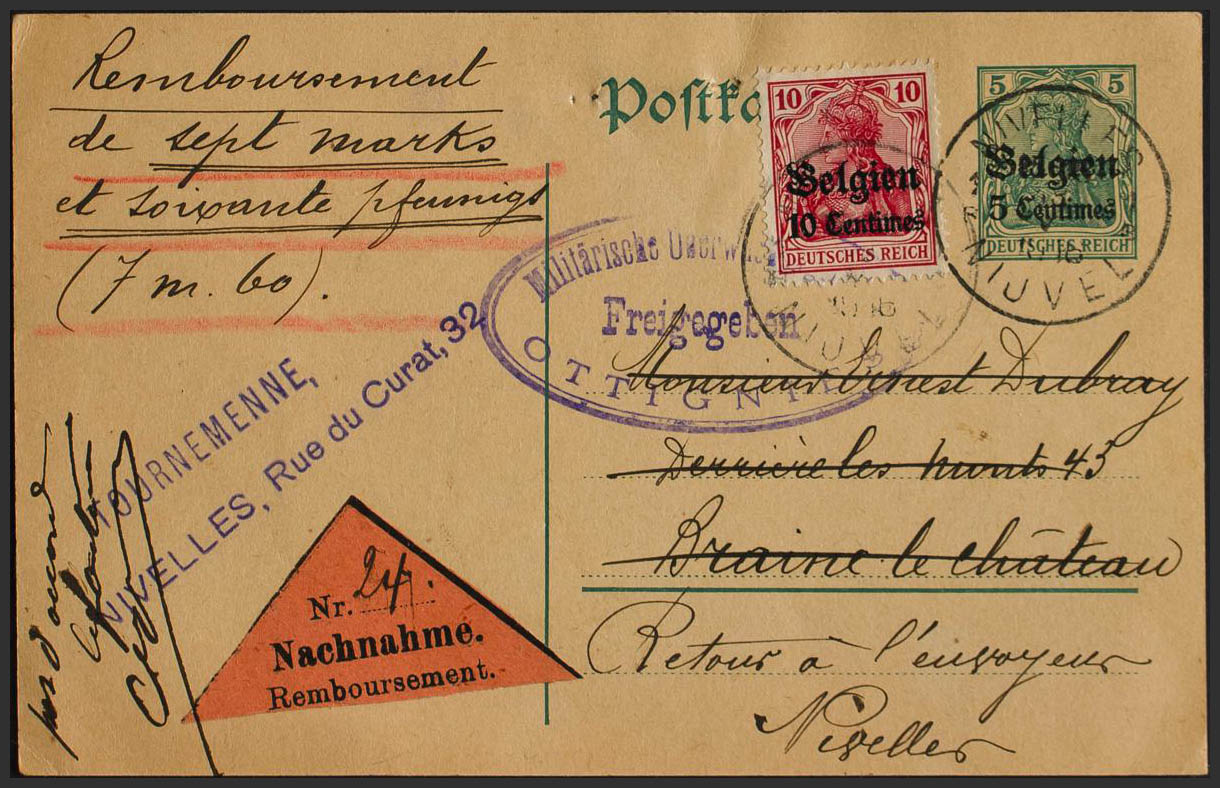 Remboursement
de sept marks
et soixante pfennigs
(7 m. 60).
Postka
10 10
Belgien
10 Centimes
DEUTSCHES REICH
5 5
Belgien
5 Centimes
DEUTSCHES REICH
NIVELLES
NIJVEL
NIJVEL
Militärische
Freigegeben
OTTIGNIES
TOURNEMENNE,
NIVELLES, Rue du Curat, 32
Monsieur Ernest Dubray
Derrière les monts 45
Braine le château
Retour à l'envoyeur
Nivelles
Nr. 247.
Nachnahme.
Remboursement.